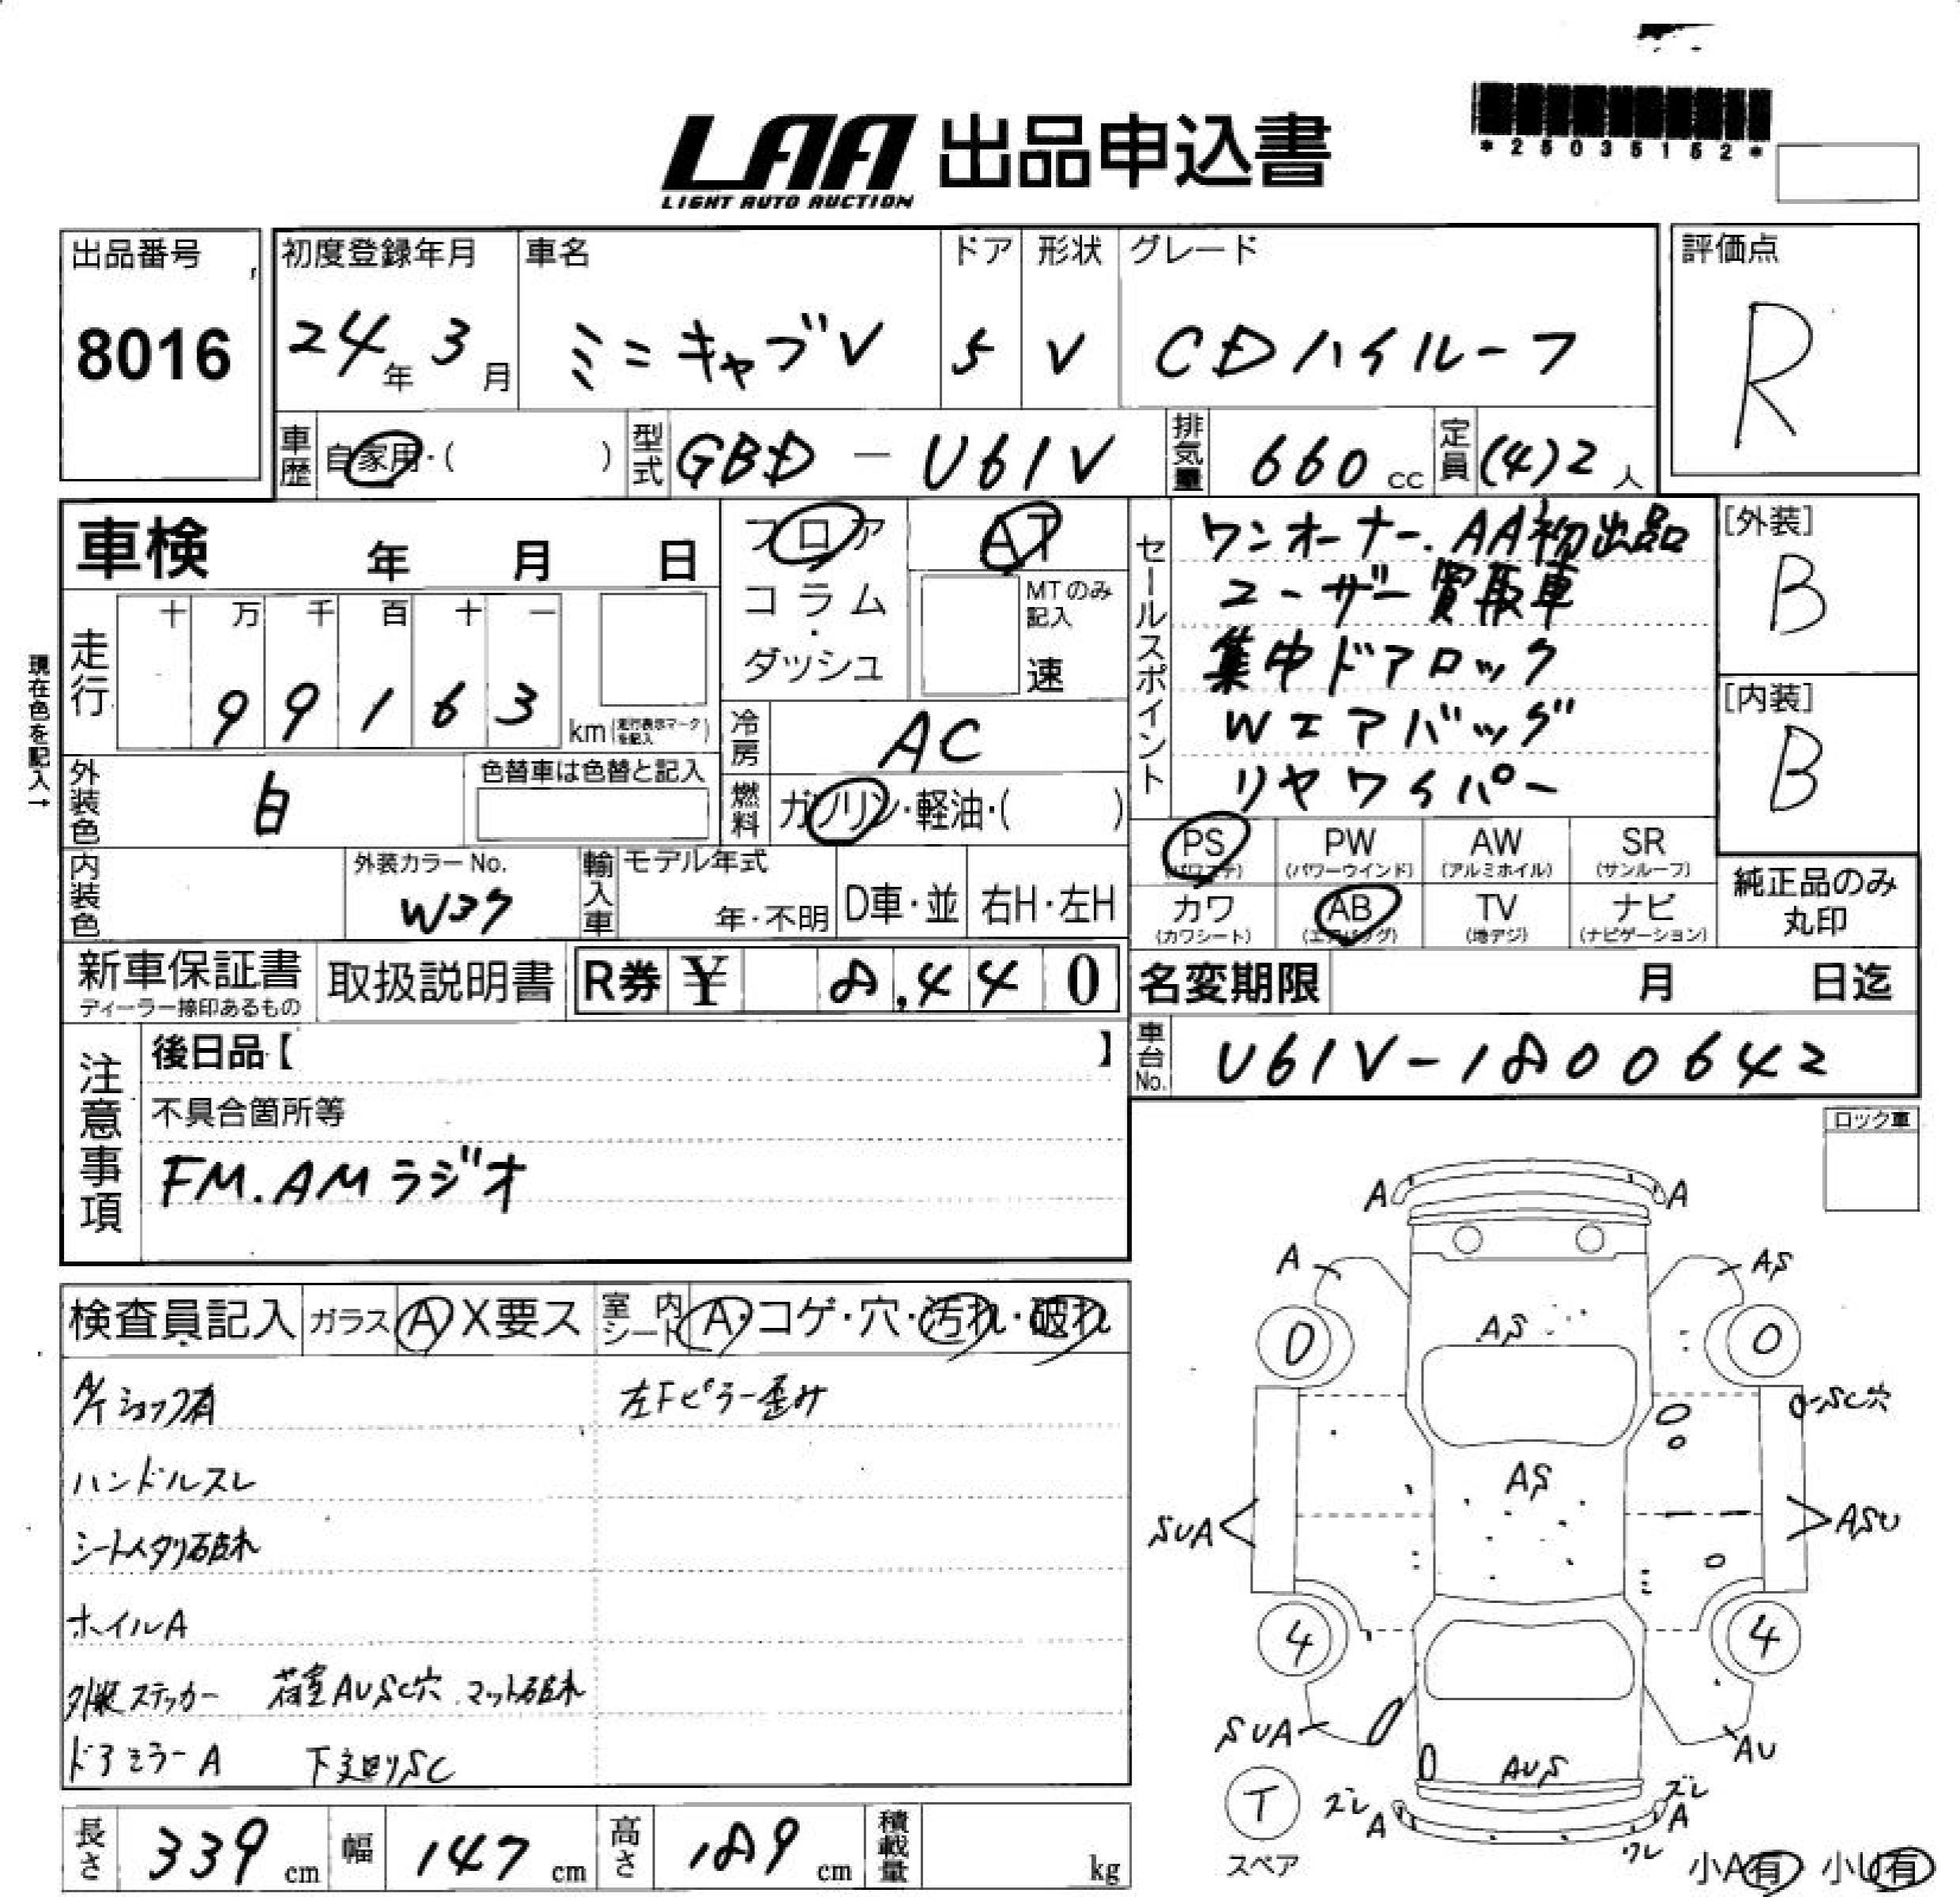 *25035152*
LAA 出品申込書
LIGHT AUTO AUCTION
出品番号
8016
初度登録年月
24年 3月
車名
ミニキャブV
ドア
5
形状
V
グレード
CDハイルーフ
評価点
R
車歴 自家用・( )
型式 GBD-U61V
排気量 660 cc
定員 (4)2 人
車検 年 月 日
フロア
コラム・ダッシュ
AT
MTのみ記入
速
セールスポイント
ワンオーナー.AA初出品
ユーザー買取車
集中ドアロック
Wエアバッグ
リヤワイパー
[外装]
B
[内装]
B
現在色を記入→
走行
十 万 千 百 十 一
99163
km(走行表示マークを記入)
冷房 AC
燃料 ガソリン・軽油・( )
外装色 白
色替車は色替と記入
内装色
外装カラーNo.
W37
輸入車
モデル年式
年・不明
D車・並
右H・左H
PS (パワステ)
PW (パワーウインド)
AW (アルミホイル)
SR (サンルーフ)
カワ (カワシート)
AB (エアバッグ)
TV (地デジ)
ナビ (ナビゲーション)
純正品のみ
丸印
新車保証書
ディーラー捺印あるもの
取扱説明書
R券 ¥ 8,440
名変期限 月 日迄
車台No. U61V-1800642
注意事項
後日品【 】
不具合箇所等
FM.AMラジオ
ロック車
検査員記入
ガラス A X要ス
室内シート A・コゲ・穴・汚れ・破れ
A/Tショック有
左Fピラー歪み
ハンドルスレ
シートヘタリ破れ
ホイルA
外装ステッカー 荷室AUSC穴 マット破れ
ドアミラーA 下廻りSC
A A
A AS
0 AS 0
SC穴
AS
SUA ASU
4 4
SUA AU
AUS
T
スペア
ズレ A
ズレ A
ワレ
小A有 小U有
長さ 339 cm
幅 147 cm
高さ 189 cm
積載量 kg